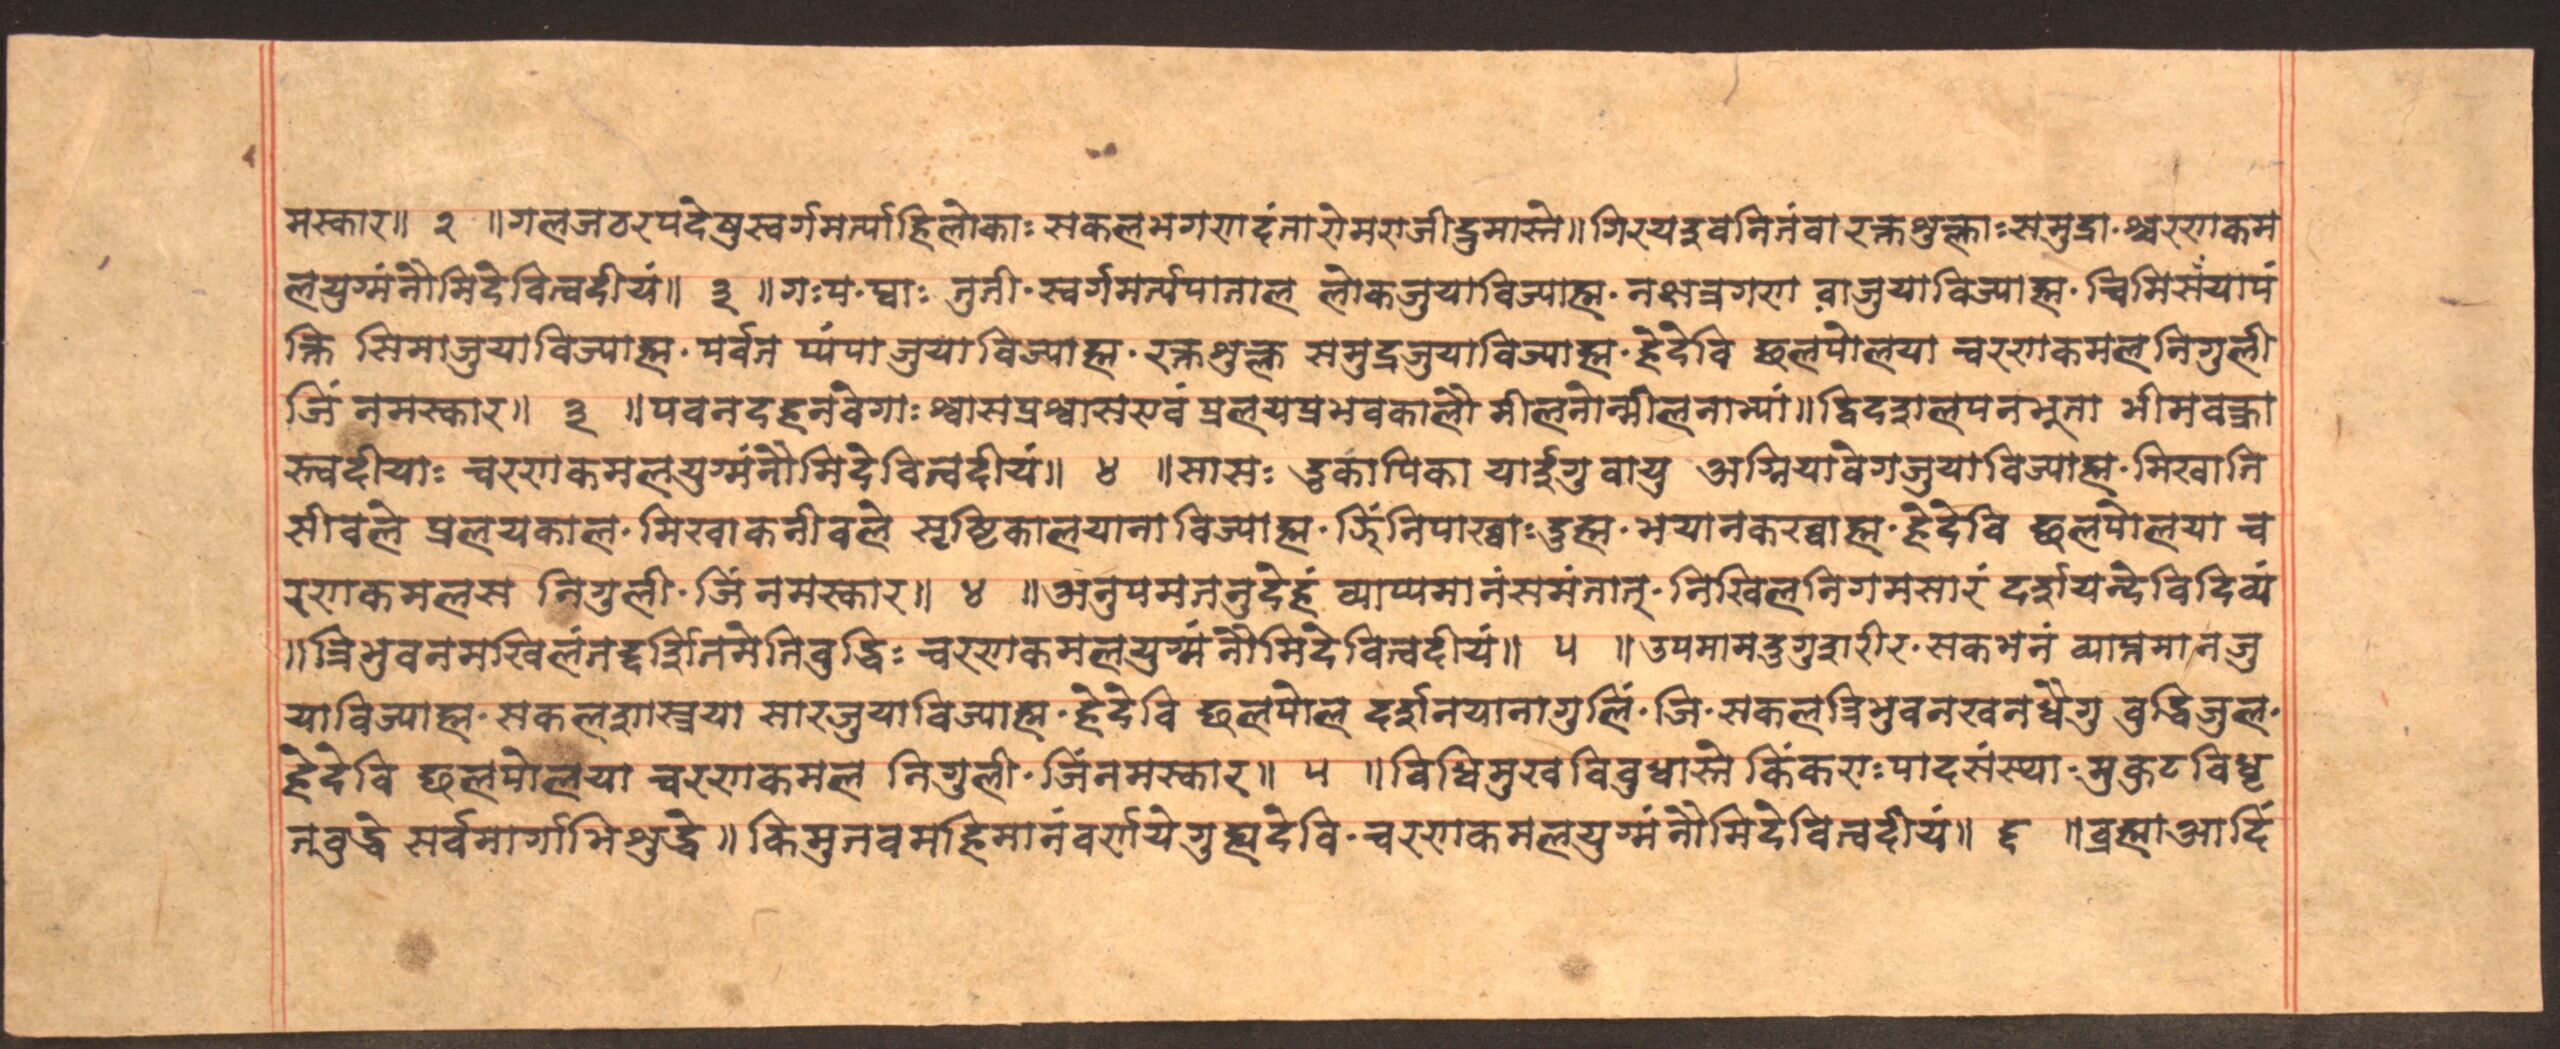 मस्कार॥ २ ॥गलजठरपदेषुस्वर्गमर्त्याहिलोकाः सकलभगणादंतारोमराजीद्रुमास्ते॥गिरयइवनितंवा रक्तशुक्लाःसमुद्रा·श्चरणकम
लयुग्मंनौमिदेवित्वदीयं॥ ३ ॥गःप·घ्वाः तुती·स्वर्गमर्त्यपाताल लोकजुयाविज्याह्म·नक्षत्रगण वाजुयाविज्याह्म·चिमिसंयापं
क्ति सिमाजुयाविज्याह्म·पर्वत प्यंपा जुयाविज्याह्म·रक्तशुक्ल समुद्रजुयाविज्याह्म·हेदेवि छलपोलया चरणकमलनिगुली
जिं नमस्कार॥ ३ ॥पवनदहनवेगाः श्वासप्रश्वासएवं प्रलयप्रभवकालौ मीलनोन्मीलनाभ्यां॥द्विदशलपनभूता भीमवक्त्रा
स्त्वदीयाः चरणकमलयुग्मंनौमिदेवित्वदीयं॥ ४ ॥सासः दुकापिका यार्इगु वायु अग्नियावेगजुयाविज्याह्म·मिखाति
सीवले प्रलयकाल·मिखाकनीवले सृष्टिकालयानाविज्याह्म·झिंनिपाख्वाः दुह्म·भयानकरव्वाह्म·हेदेवि छलपोलया च
रणकमलस निगुली·जिंनमस्कार॥ ४ ॥अनुपमतनुदेहं व्याप्यमानंसमंतात्·निखिलनिगमसारं दर्शयन्देविदिव्यं
॥त्रिभुवनमखिलंतद्दर्शितंमेतिवुद्धिः चरणकमलयुग्मंनौमिदेवित्वदीयं॥ ५ ॥उपमामदुगुशरीर·सकभनं व्याप्तमानजु
याविज्याह्म·सकलशास्त्रया सारजुयाविज्याह्म·हेदेवि छलपोल दर्शनयानागुलिं·जि·सकलत्रिभुवनखनधैगु वुद्धिजुल·
हेदेवि छलपोलया चरणकमल निगुली·जिंनमस्कार॥ ५ ॥विधिमुखविवुधास्ते किंकराःपादसंस्था·मुकुटविधृ
तवुद्धे सर्वमार्गाभिशुद्धे॥किमुतवमहिमानंवर्णयेगुह्यदेवि·चरणकमलयुग्मंनौमिदेवित्वदीयं॥ ६ ॥व्रह्माआदिं